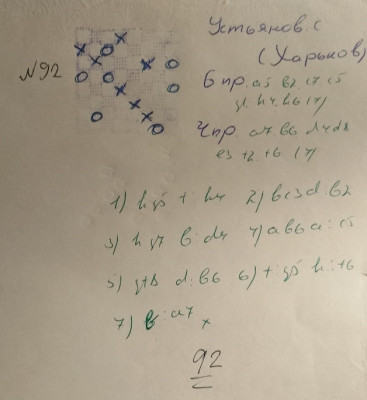 N92
Устьянов. С
(Харьков)
б пр. a5 b2 c7 c5
g1 h4 h6 (7)
ч пр a7 b6 d4 d8
e3 f2 f6 (7)
1) hg5 f:h4 2) bc3 d:b2
3) hg7 b:d4 4) ab6 a:c5
5) gf8 d:b6 6) fg5 h:f6
7) b:a7 x
92